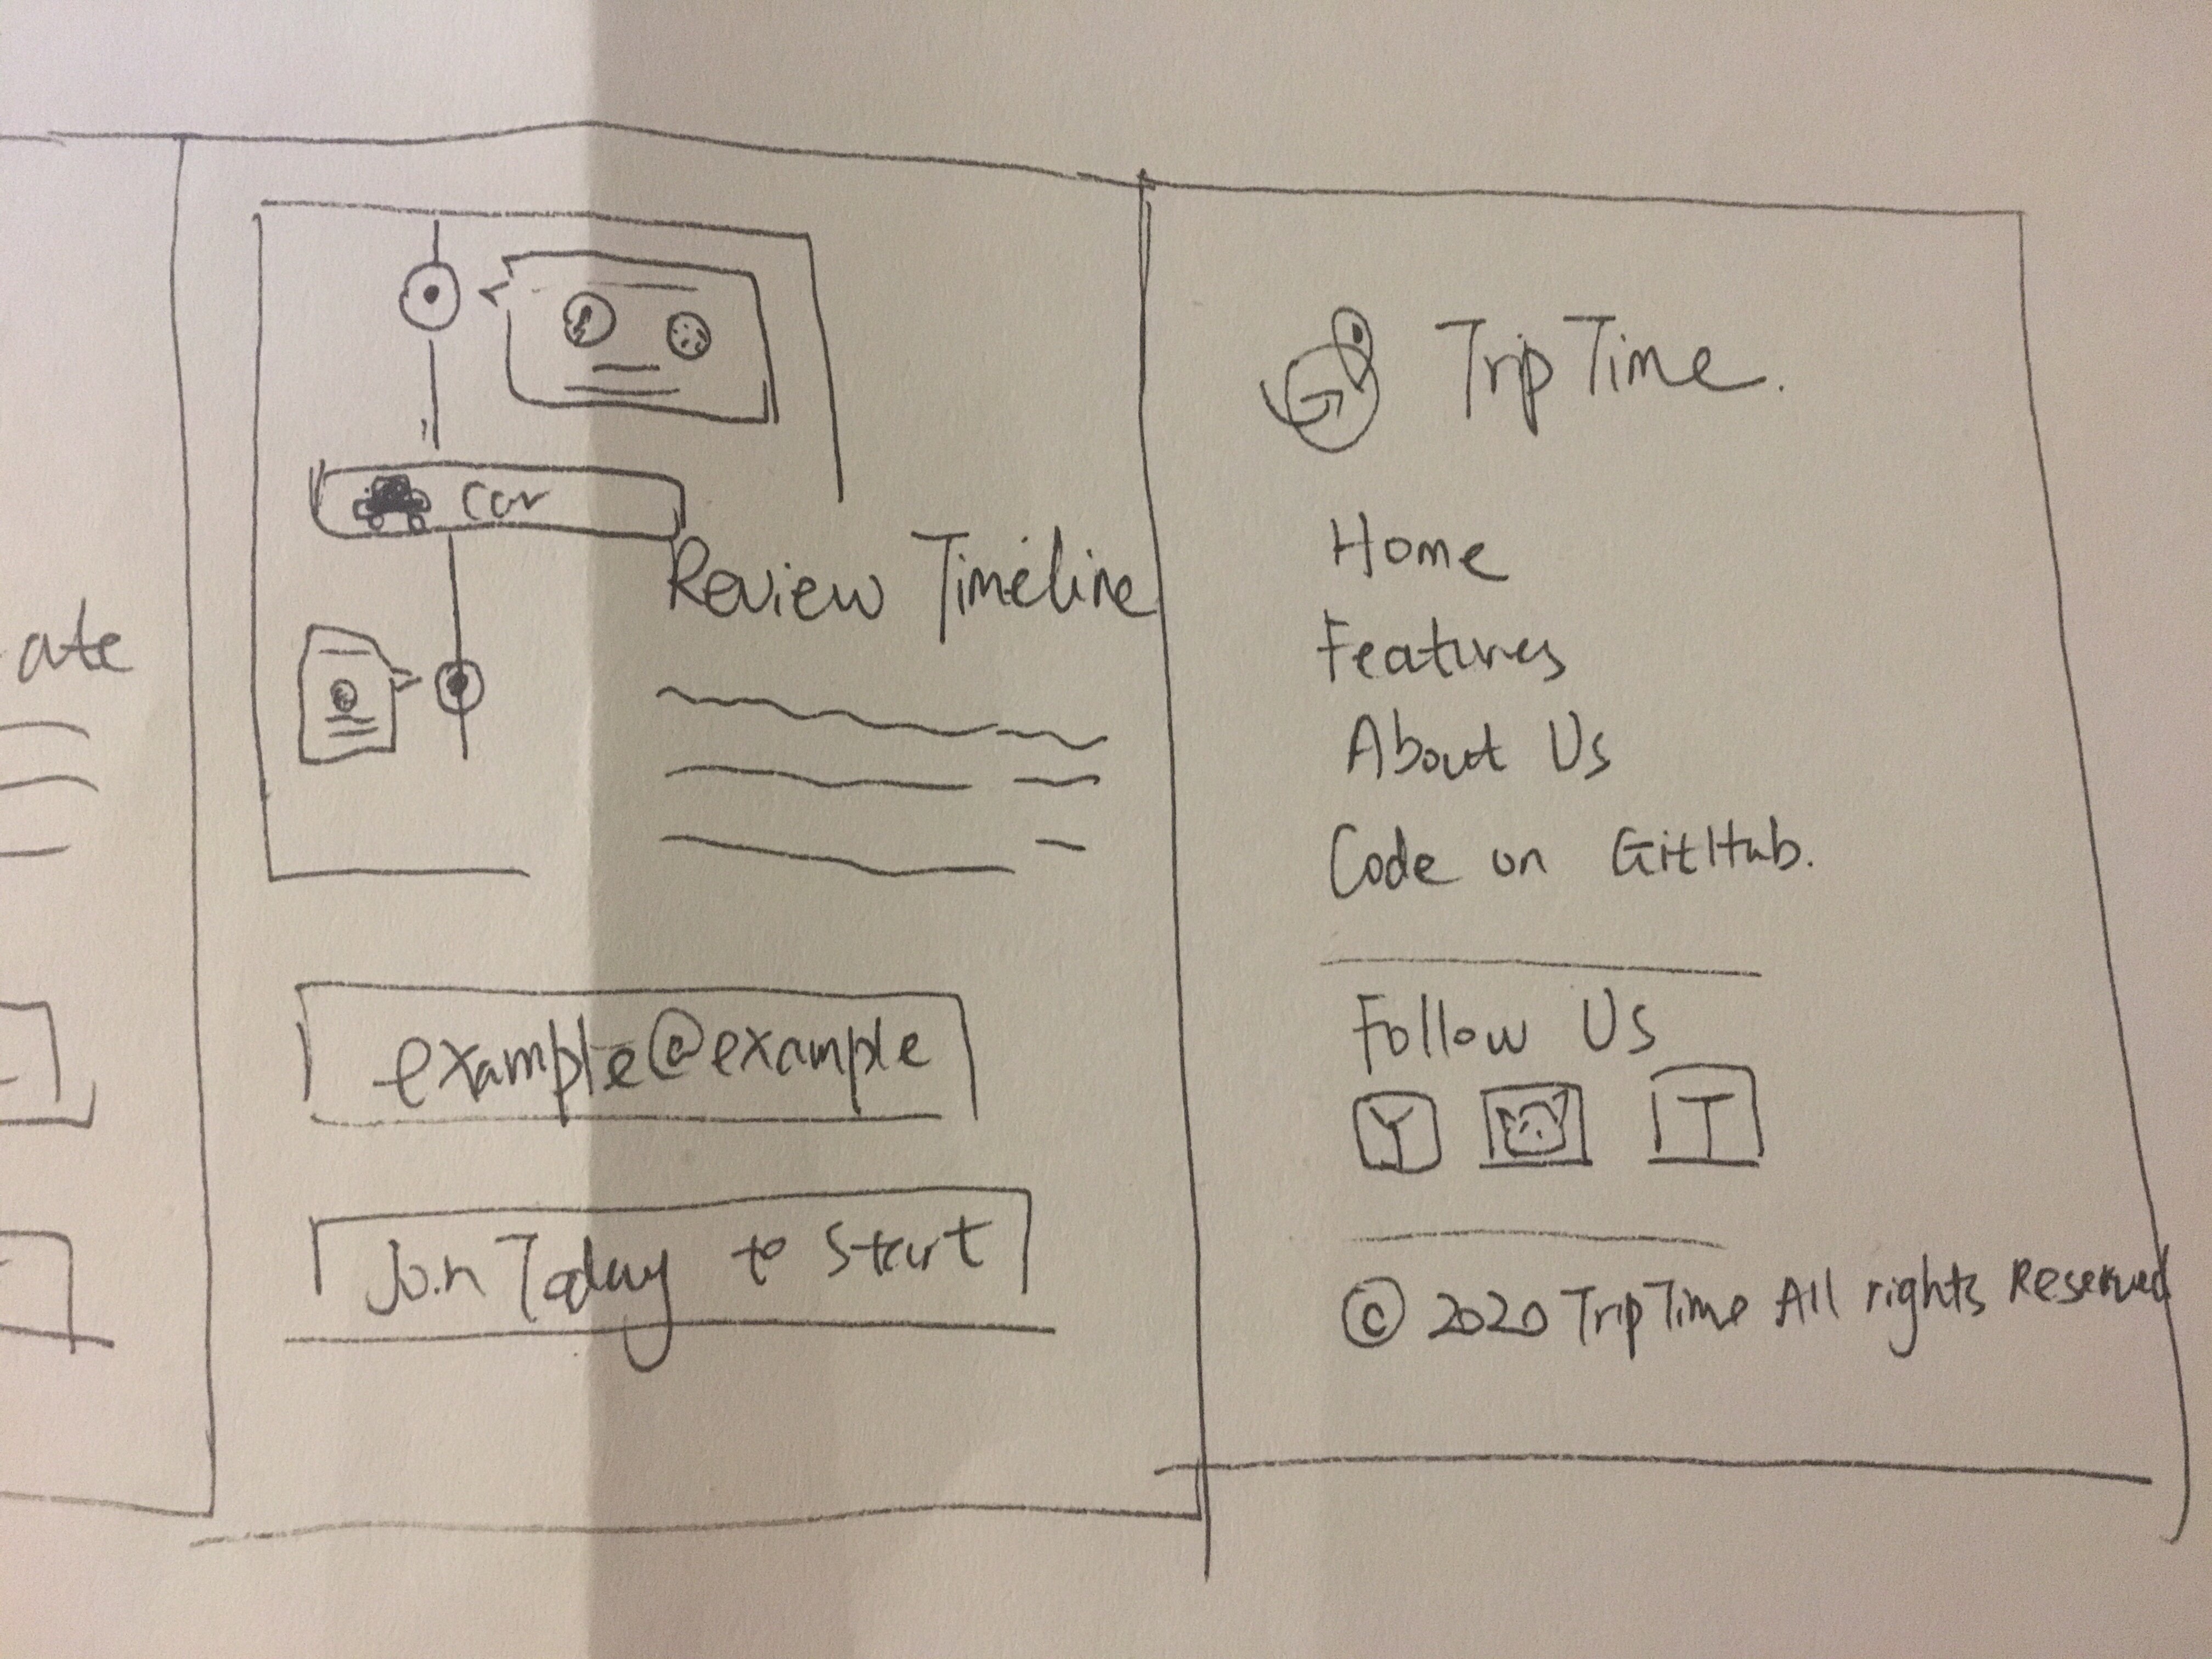 ate
Car
Review Timeline
example@example
Join Today to Start
TripTime.
Home
Features
About Us
Code on GitHub.
Follow Us
Y
T
© 2020 TripTime All rights Reserved